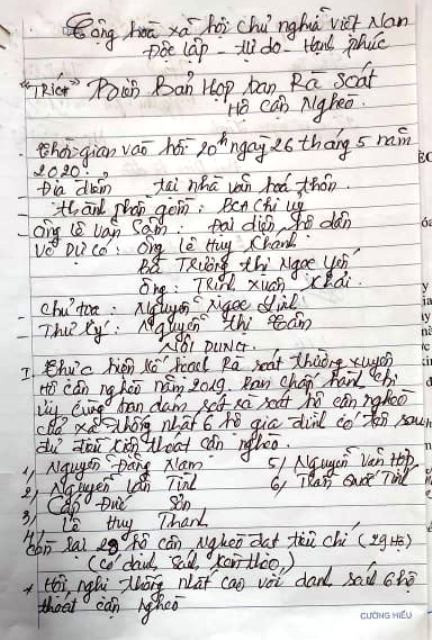 Cộng hoà xã hội chủ nghĩa việt Nam
Độc lập - tự do - Hạnh phúc
"TRích" Biên Bản Họp ban Rà Soát
Hộ cận Nghèo.
Thời gian vào hồi 20h ngày 26 tháng 5 năm
2020.
Địa điểm tại nhà văn hoá thôn.
- thành phần gồm: BCH chi uỷ
- ông lê văn Sâm. Đại diện hộ dân
Về Dự có: ông Lê Huy Khanh
Bà TRương thị Ngọc Yến
ông: TRịnh Xuân Khải.
- Chủ toạ: Nguyễn Ngọc Linh
- Thư ký: Nguyễn Thị Tâm
NỘI DUNG.
I. Thực hiện kế hoạch Rà soát thường xuyên
Hộ cận nghèo năm 2019. ban chấp hành chi
ủy cùng ban dám sát rà soát hộ cận nghèo
của xã thống nhất 6 hộ gia đình có tên sau
đủ điều kiện thoát cận nghèo.
1, Nguyễn Đăng Nam 5, Nguyễn Văn Hợp
2, Nguyễn Văn Tình 6, Trần Quốc Tính
3, Cao Đức Sơn
4, Lê Huy Thanh
Còn lại 29 hộ cận nghèo đạt tiêu chí (29 Hộ)
(Có danh sách kèm theo)
* Hội nghị thống nhất cao với danh sách 6 hộ
thoát cận nghèo
CƯỜNG HIẾU